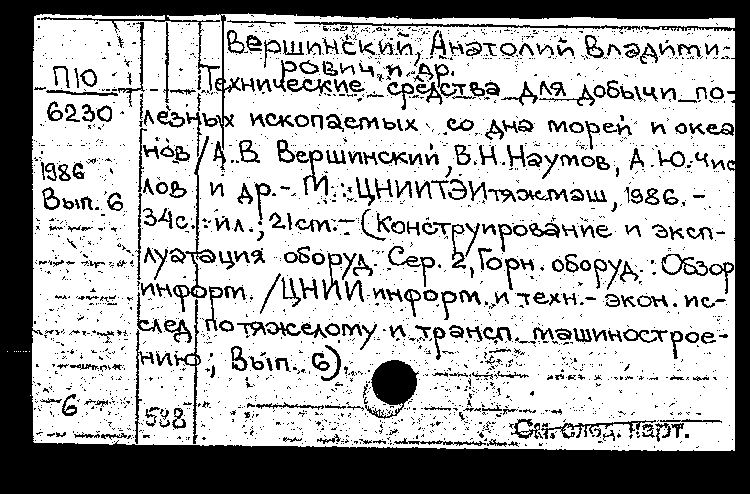 Вершинский, Анатолий Владими-
рович и др.
П10
Технические средства для добычи по-
6230
лезных ископаемых со дна морей и океа
нов / А.В. Вершинский, В.Н. Наумов, А.Ю. Чис
1986
лов и др. - М. : ЦНИИТЭИтяжмаш, 1986. -
Вып. 6
34с. : ил. ; 21см. - (Конструирование и эксп-
луатация оборуд. Сер. 2, Горн. оборуд. : Обзор
информ. / ЦНИИ информ. и техн.- экон. ис-
след. по тяжелому и трансп. машинострое-
нию ; Вып. 6).
6
588
См. след. карт.